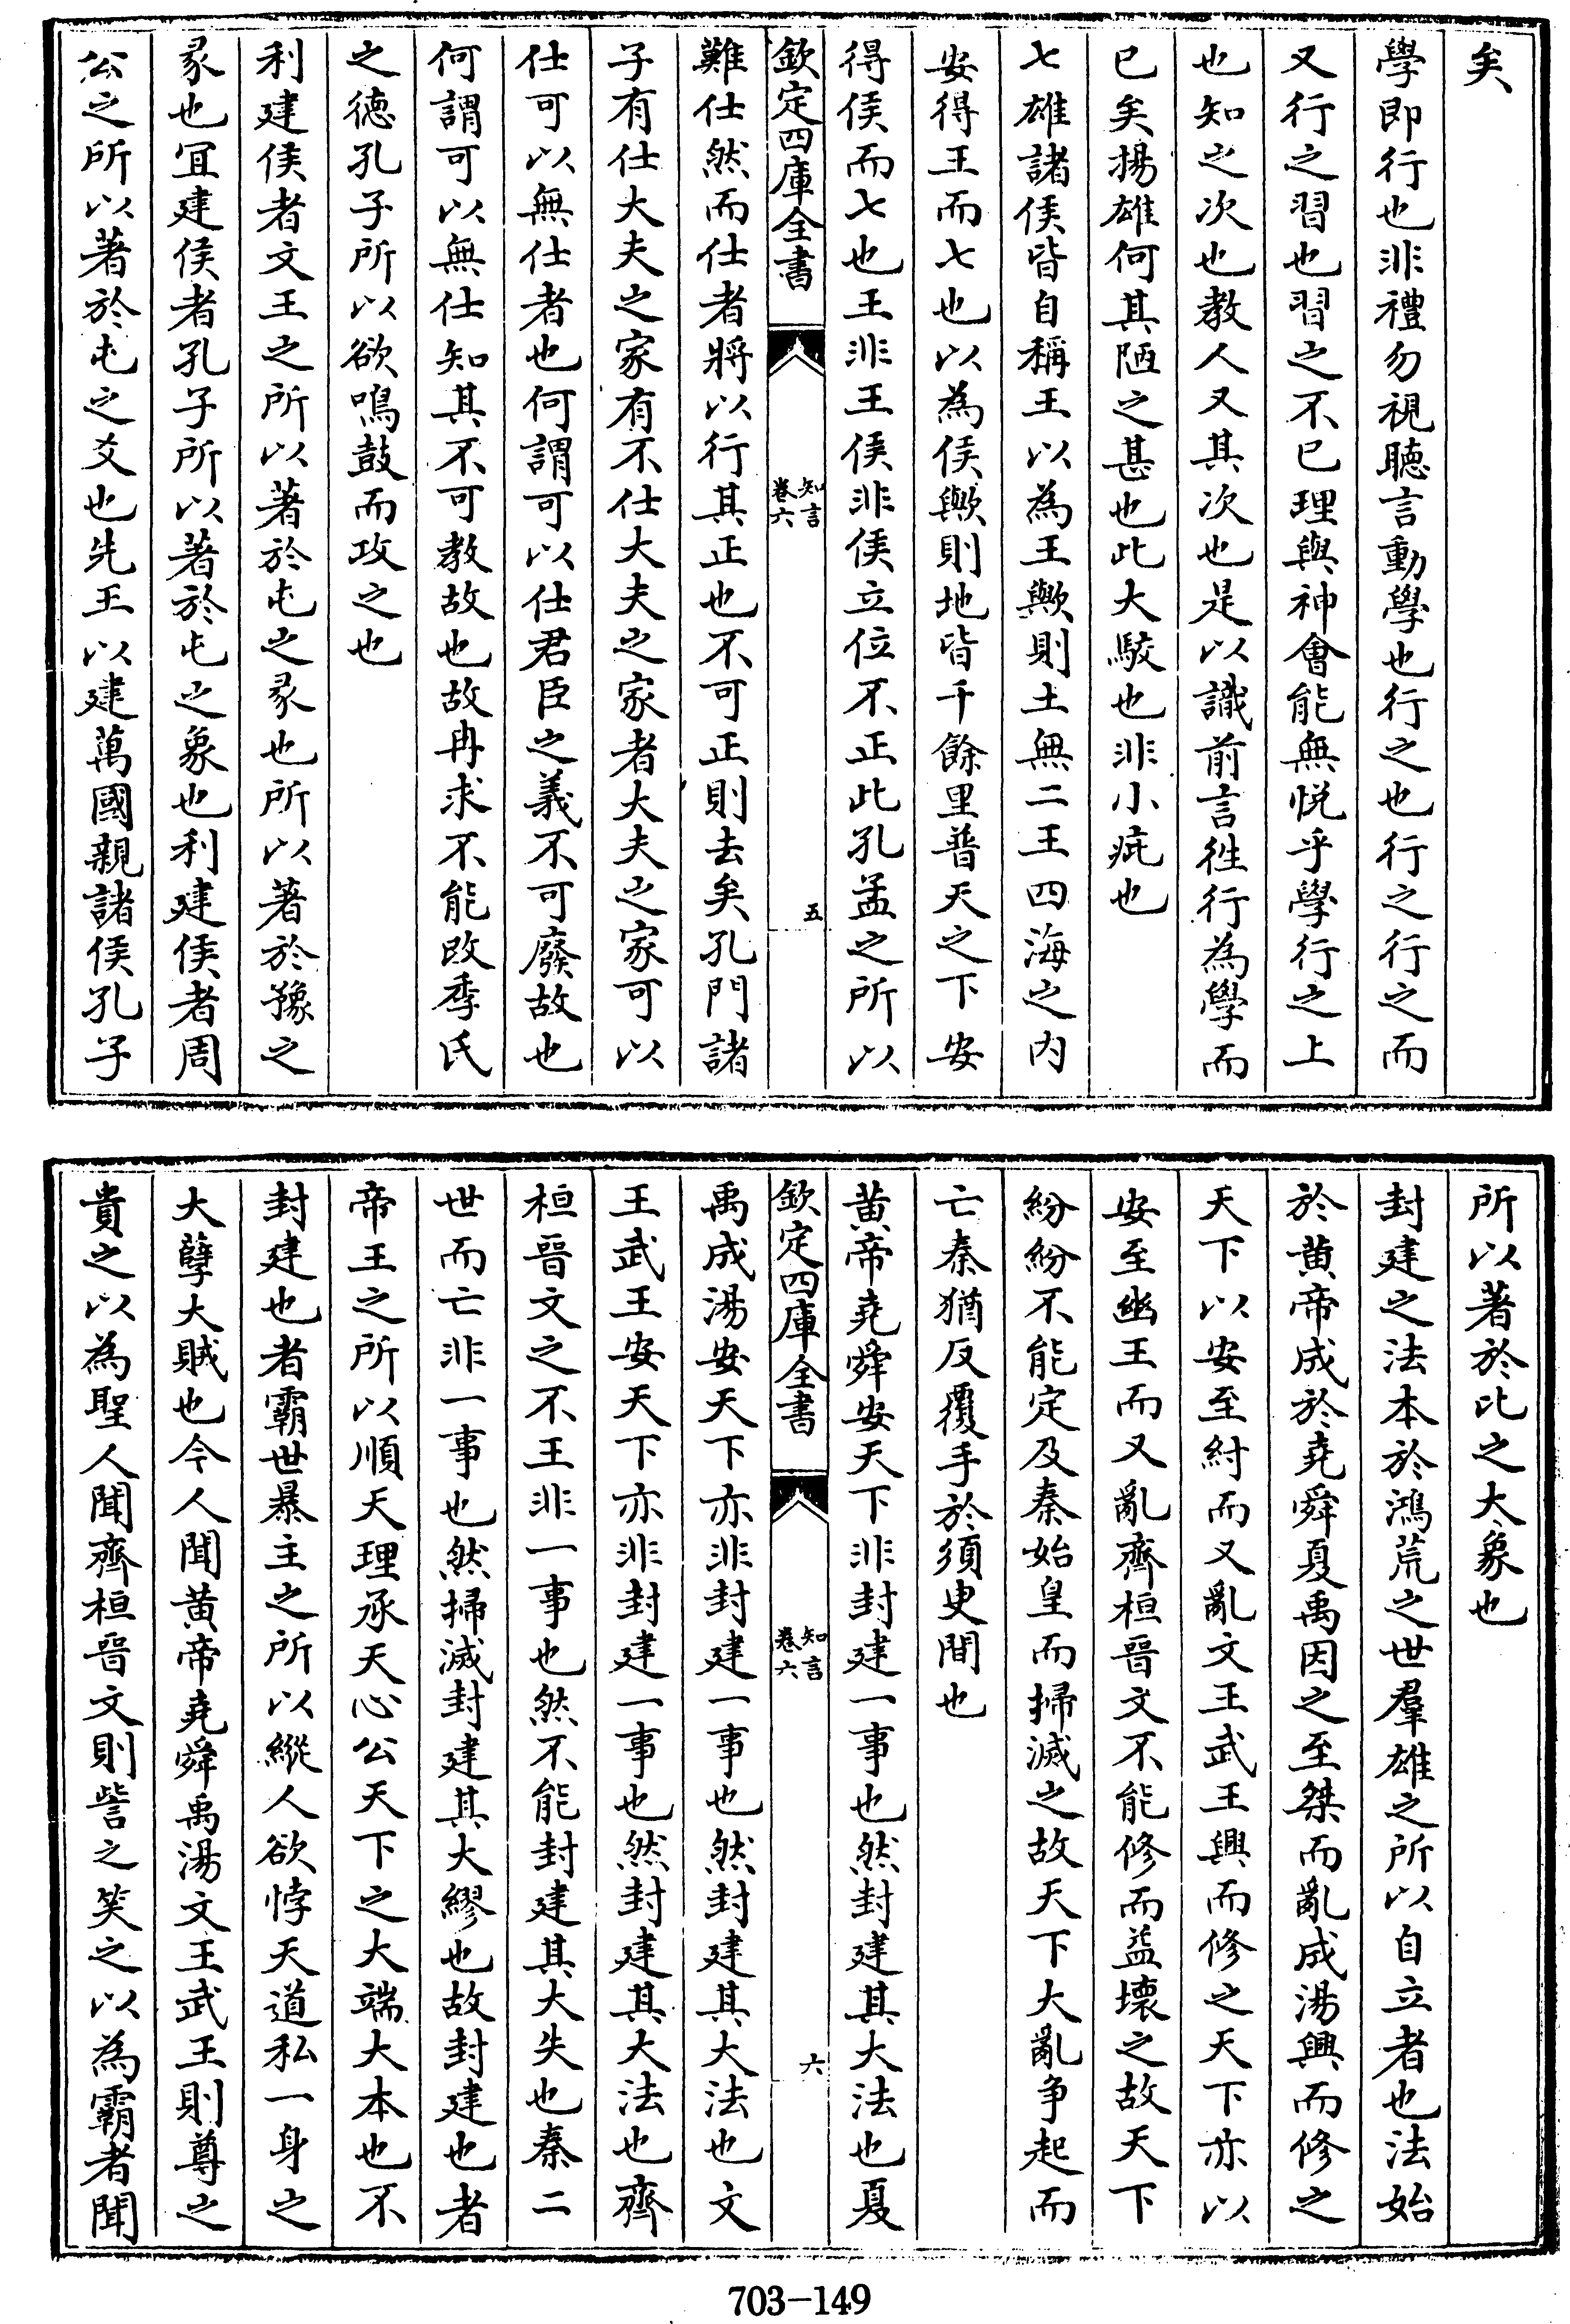 矣
學即行也非禮勿視聽言動學也行之也行之行之而
又行之習也習之不已理與神會能無悦乎學行之上
也知之次也教人又其次也是以識前言徃行為學而
已矣揚雄何其陋之甚也此大駮也非小疵也
七雄諸侯皆自稱王以為王歟則土無二王四海之内
安得王而七也以為侯歟則地皆千餘里普天之下安
得侯而七也王非王侯非侯立位不正此孔孟之所以
欽定四庫全書
知言
卷六
五
難仕然而仕者將以行其正也不可正則去矣孔門諸
子有仕大夫之家有不仕大夫之家者大夫之家可以
仕可以無仕者也何謂可以仕君臣之義不可廢故也
何謂可以無仕知其不可教故也故冉求不能改季氏
之德孔子所以欲鳴鼓而攻之也
利建侯者文王之所以著於屯之彖也所以著於豫之
彖也冝建侯者孔子所以著於屯之象也利建侯者周
公之所以著於屯之爻也先王以建萬國親諸侯孔子
所以著於比之大象也
封建之法本於鴻荒之世羣雄之所以自立者也法始
於黄帝成於堯舜夏禹因之至桀而亂成湯興而修之
天下以安至紂而又亂文王武王興而修之天下亦以
安至幽王而又亂齊桓晉文不能修而益壞之故天下
紛紛不能定及秦始皇而掃滅之故天下大亂争起而
亡秦猶反覆手於須臾間也
黄帝堯舜安天下非封建一事也然封建其大法也夏
欽定四庫全書
知言
卷六
六
禹成湯安天下亦非封建一事也然封建其大法也文
王武王安天下亦非封建一事也然封建其大法也齊
桓晉文之不王非一事也然不能封建其大失也秦二
世而亡非一事也然掃滅封建其大繆也故封建也者
帝王之所以順天理承天心公天下之大端大本也不
封建也者霸世暴主之所以縱人欲悖天道私一身之
大孽大賊也今人聞黄帝堯舜禹湯文王武王則尊之
貴之以為聖人聞齊桓晉文則訾之笑之以為霸者聞
703-149